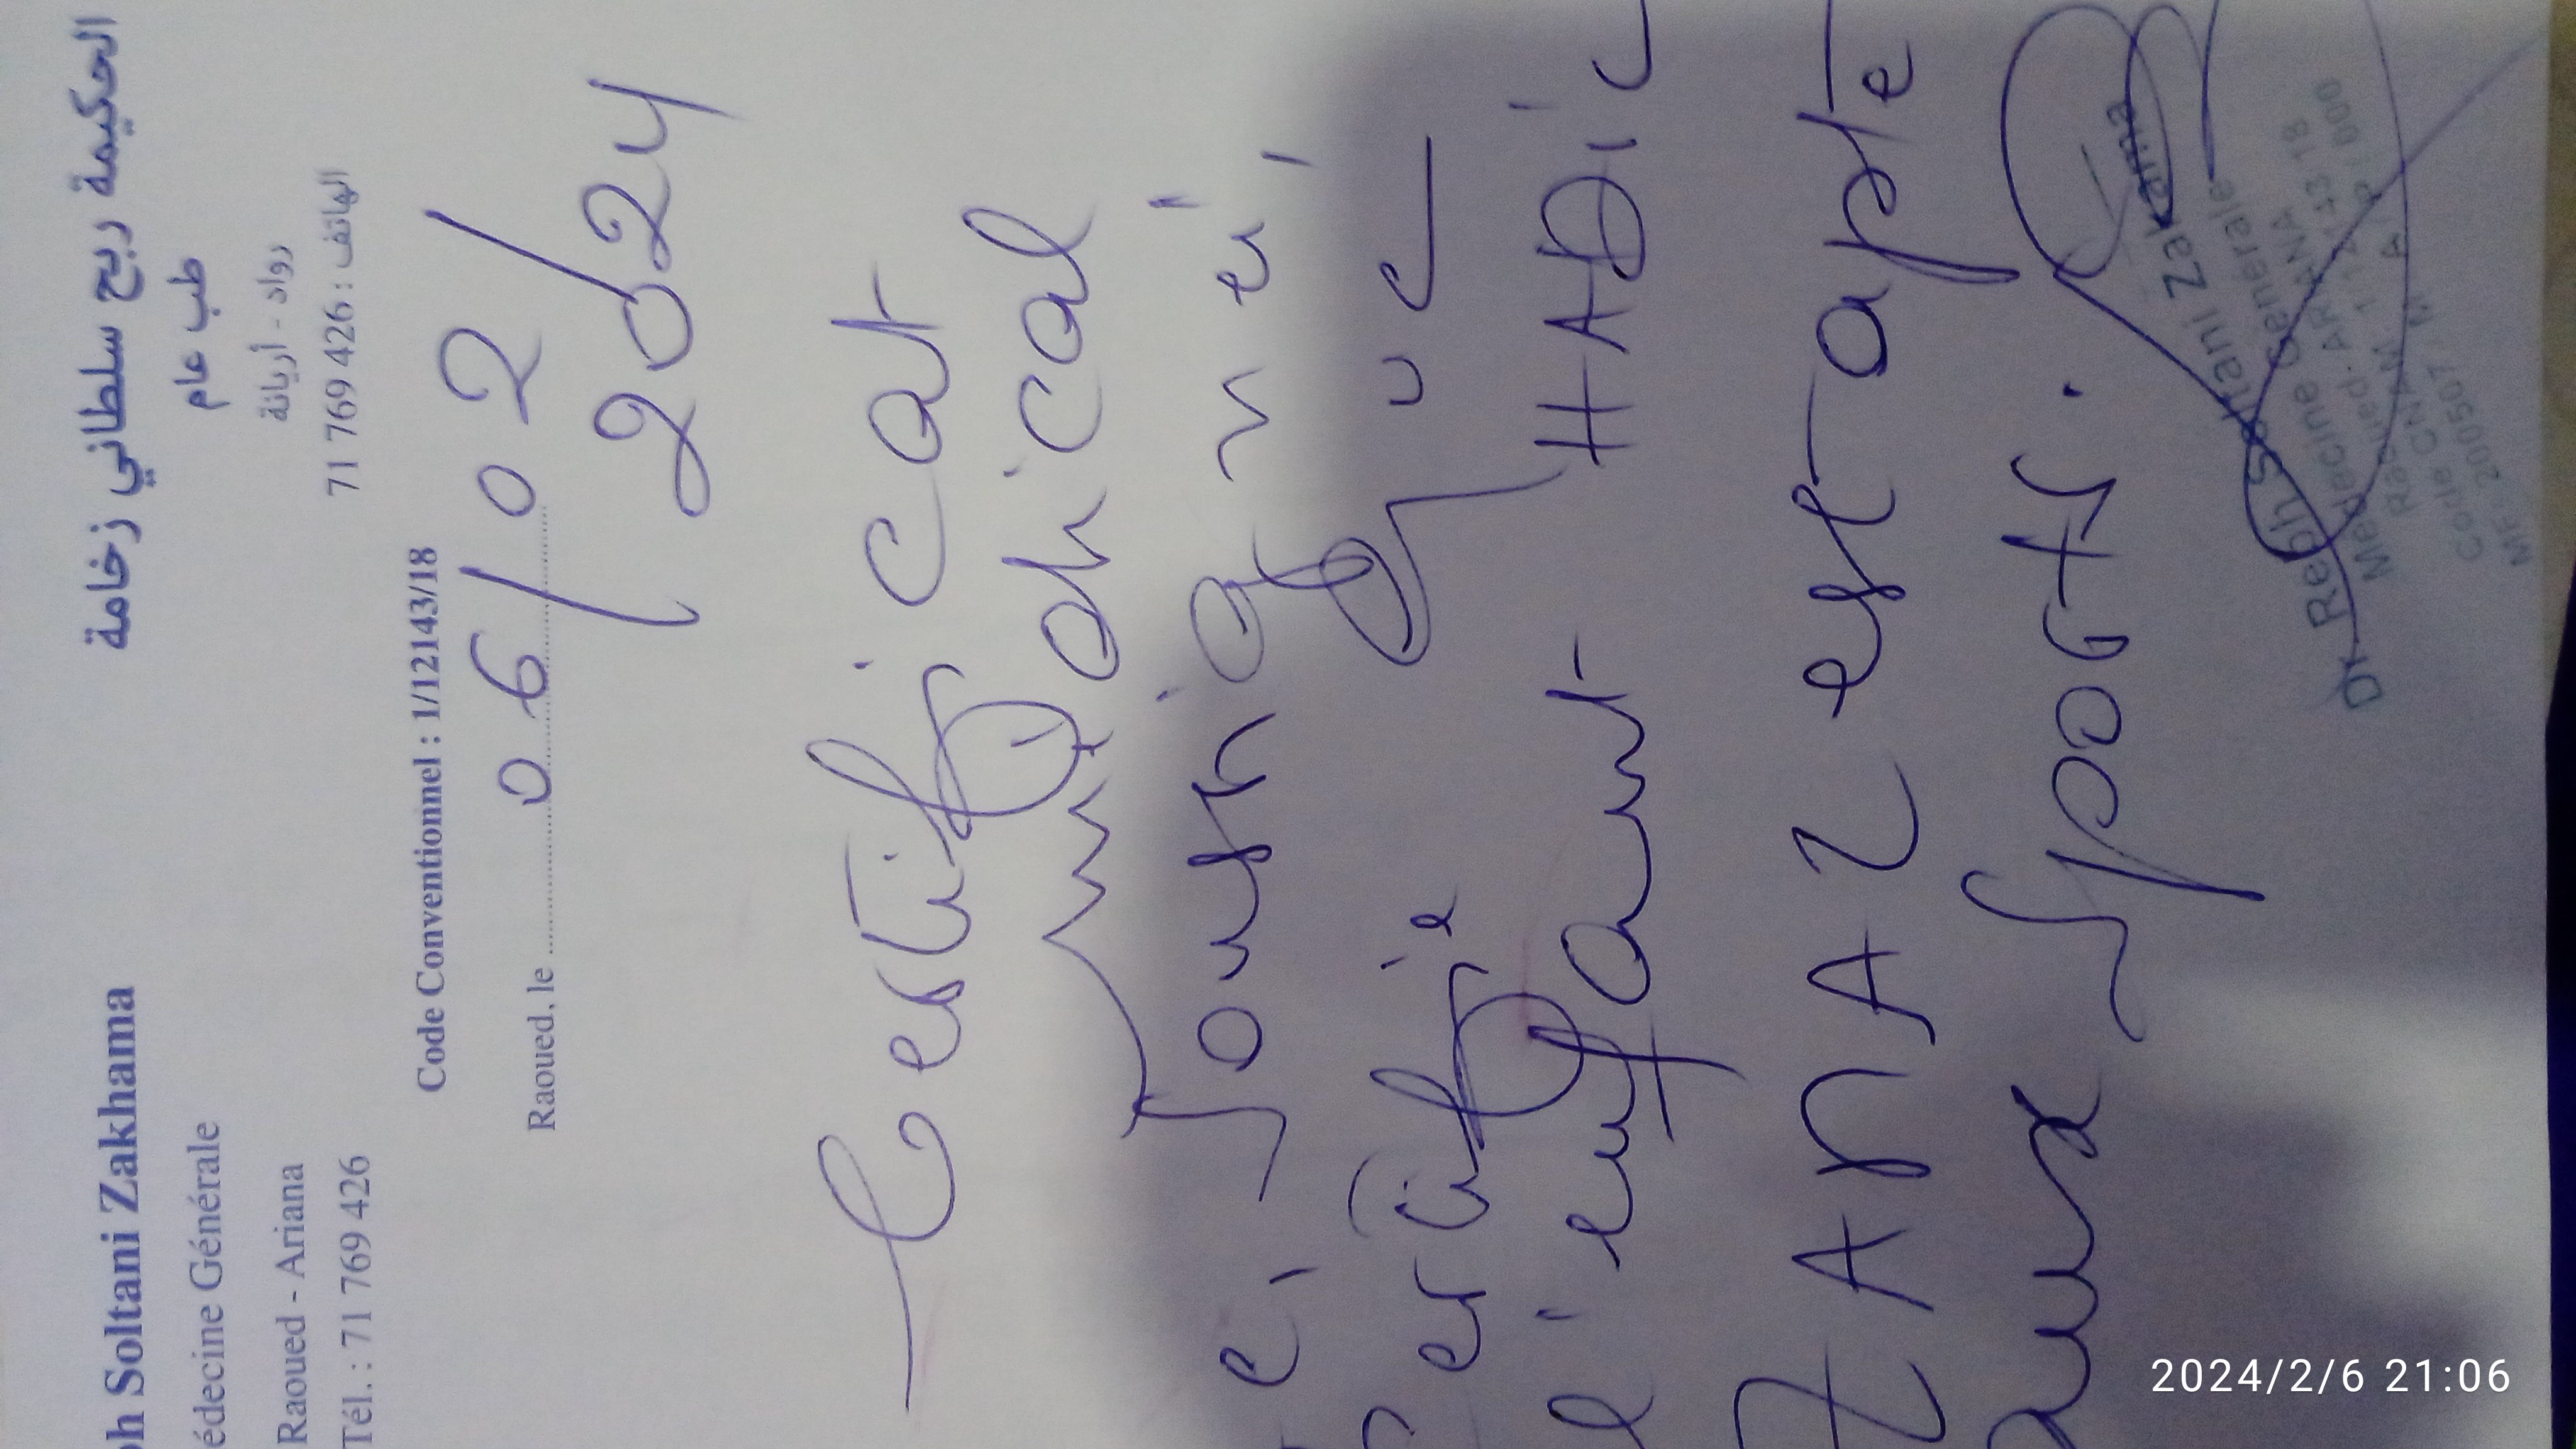 ph Soltani Zakhama
الحكيمة ربح سلطاني زخامة
édecine Générale
طب عام
Raoued - Ariana
رواد - أريانة
Tél. : 71 769 426
الهاتف : 426 769 71
Code Conventionnel : 1/12143/18
Raoued, le 06/02/
2024
Certificat
médical
e, soussigné,
certifie que
l'enfant HADIL
ZANAZ est apte
aux sports.
Dr. Rebh Soltani Zakhama
Médecine Générale
Raoued - ARIANA
Code CNAM 1/12143/18
2024/2/6 21:06